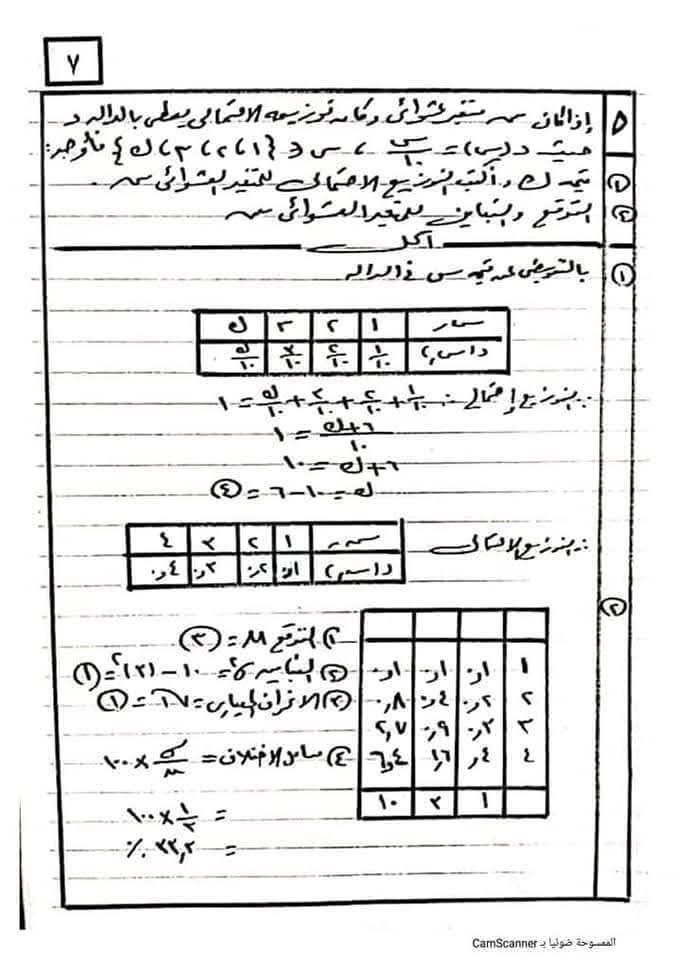 ٧
٥ إذا كان س متغير عشوائى وكان توزيعه الاحتمالى يعطى بالداله د
حيث د(س) = س/١٠ ، س ∈ {١، ٢، ٣، ك} فأوجد:
① قيمه ك وأكتب التوزيع الاحتمالى للمتغير العشوائى س.
② التوقع والتباين للمتغير العشوائى س
الحل
① بالتعويض عن قيم س فى الداله
سر ١ ٢ ٣ ك
د(سر) ١/١٠ ٢/١٠ ٣/١٠ ك/١٠
∵ التوزيع إحتمالى ∴ ١/١٠ + ٢/١٠ + ٣/١٠ + ك/١٠ = ١
٦+ك/١٠ = ١
٦+ك = ١٠
ك = ١٠-٦ = ④
∴ التوزيع الاحتمالى
سر ١ ٢ ٣ ٤
د(سر) ٠,١ ٠,٢ ٠,٣ ٠,٤
②
١ ٠,١ ٠,١ ٠,١
٢ ٠,٢ ٠,٤ ٠,٨
٣ ٠,٣ ٠,٩ ٢,٧
٤ ٠,٤ ١,٦ ٦,٤
١ ٣ ١٠
① التوقع μ = ③
② التباين σ² = ١٠ - (٣)² = ①
③ الانحراف المعيارى = √١ = ①
④ معامل الاختلاف = σ/μ × ١٠٠
= ١/٣ × ١٠٠
= ٣٣,٣ ٪
الممسوحة ضوئيا بـ CamScanner